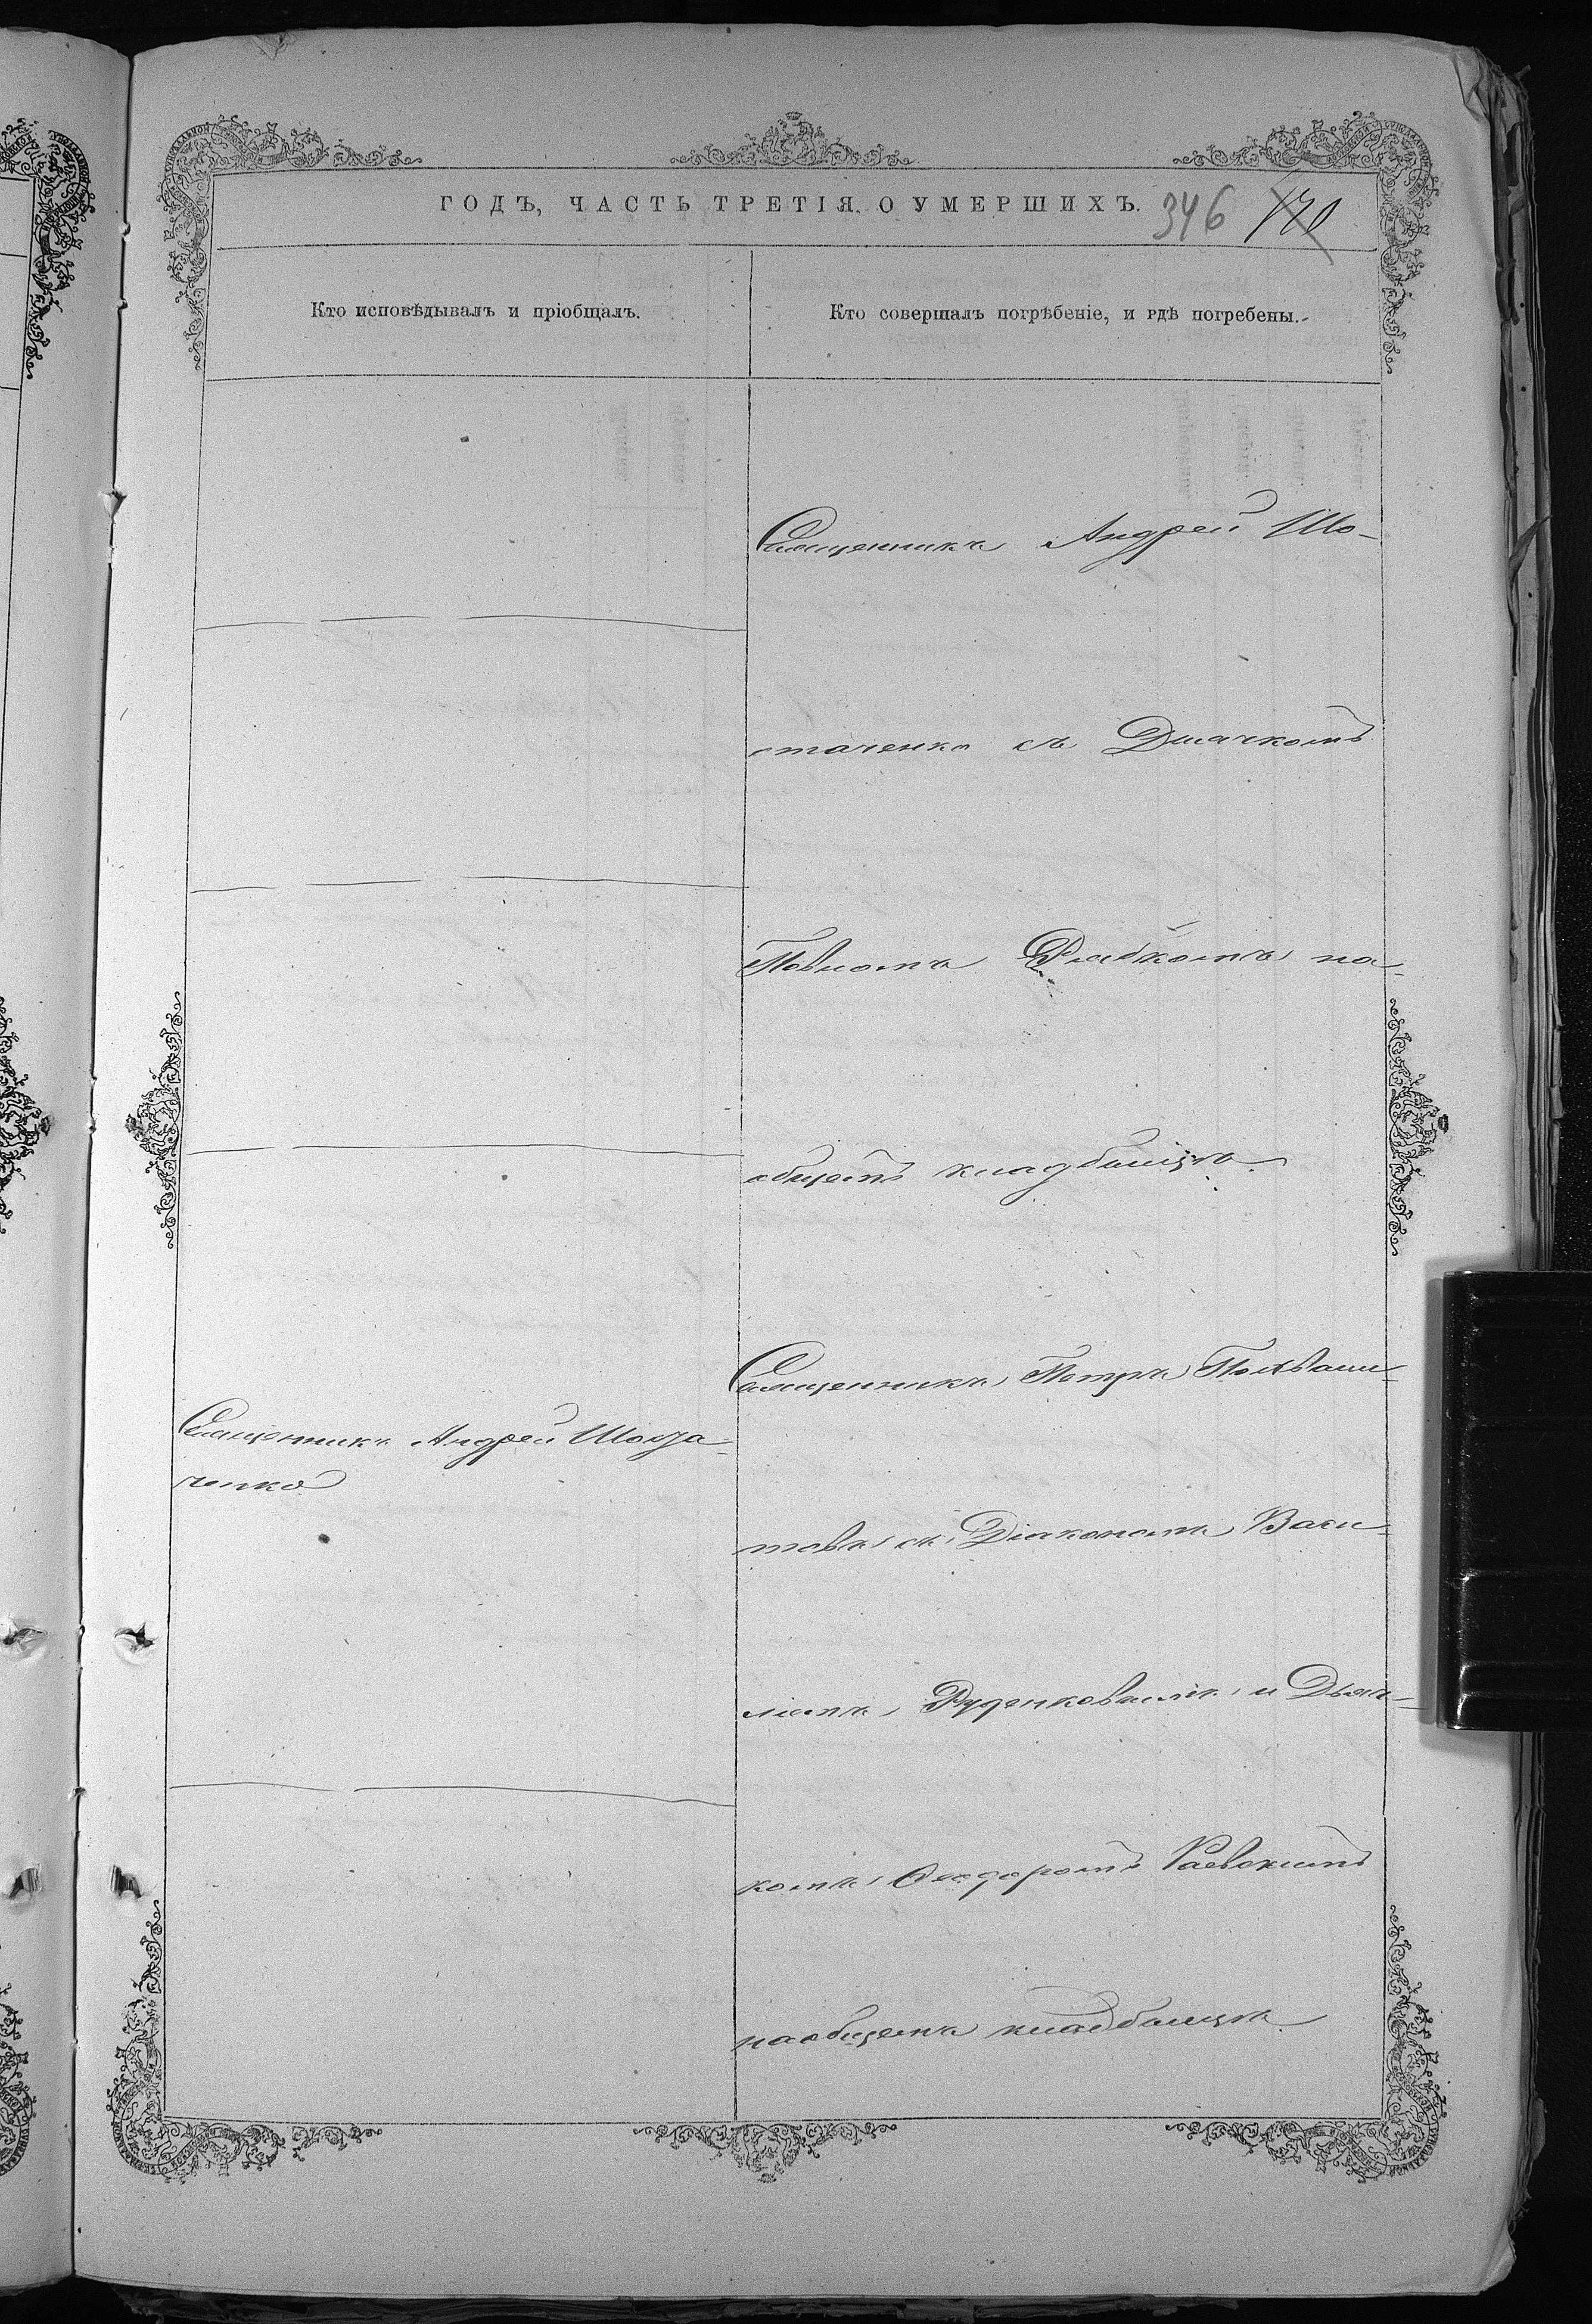 ГОДЪ, ЧАСТЬ ТРЕТІЯ, О УМЕРШИХЪ.
346 170
Кто исповѣдывалъ и пріобщалъ.
Кто совершалъ погрѣбеніе, и гдѣ погребены.
Священникъ Андрей Шо-
стаченко съ Дьячкомъ
Рябкомъ на
общемъ кладбищѣ
Священникъ Андрей Шоста-
ченко
Священникъ Петръ Похвали-
товъ съ Діакономъ Васи-
ліемъ Руденковымъ и Дьяч-
комъ Ѳеодоромъ Раевскимъ
на общемъ кладбищѣ